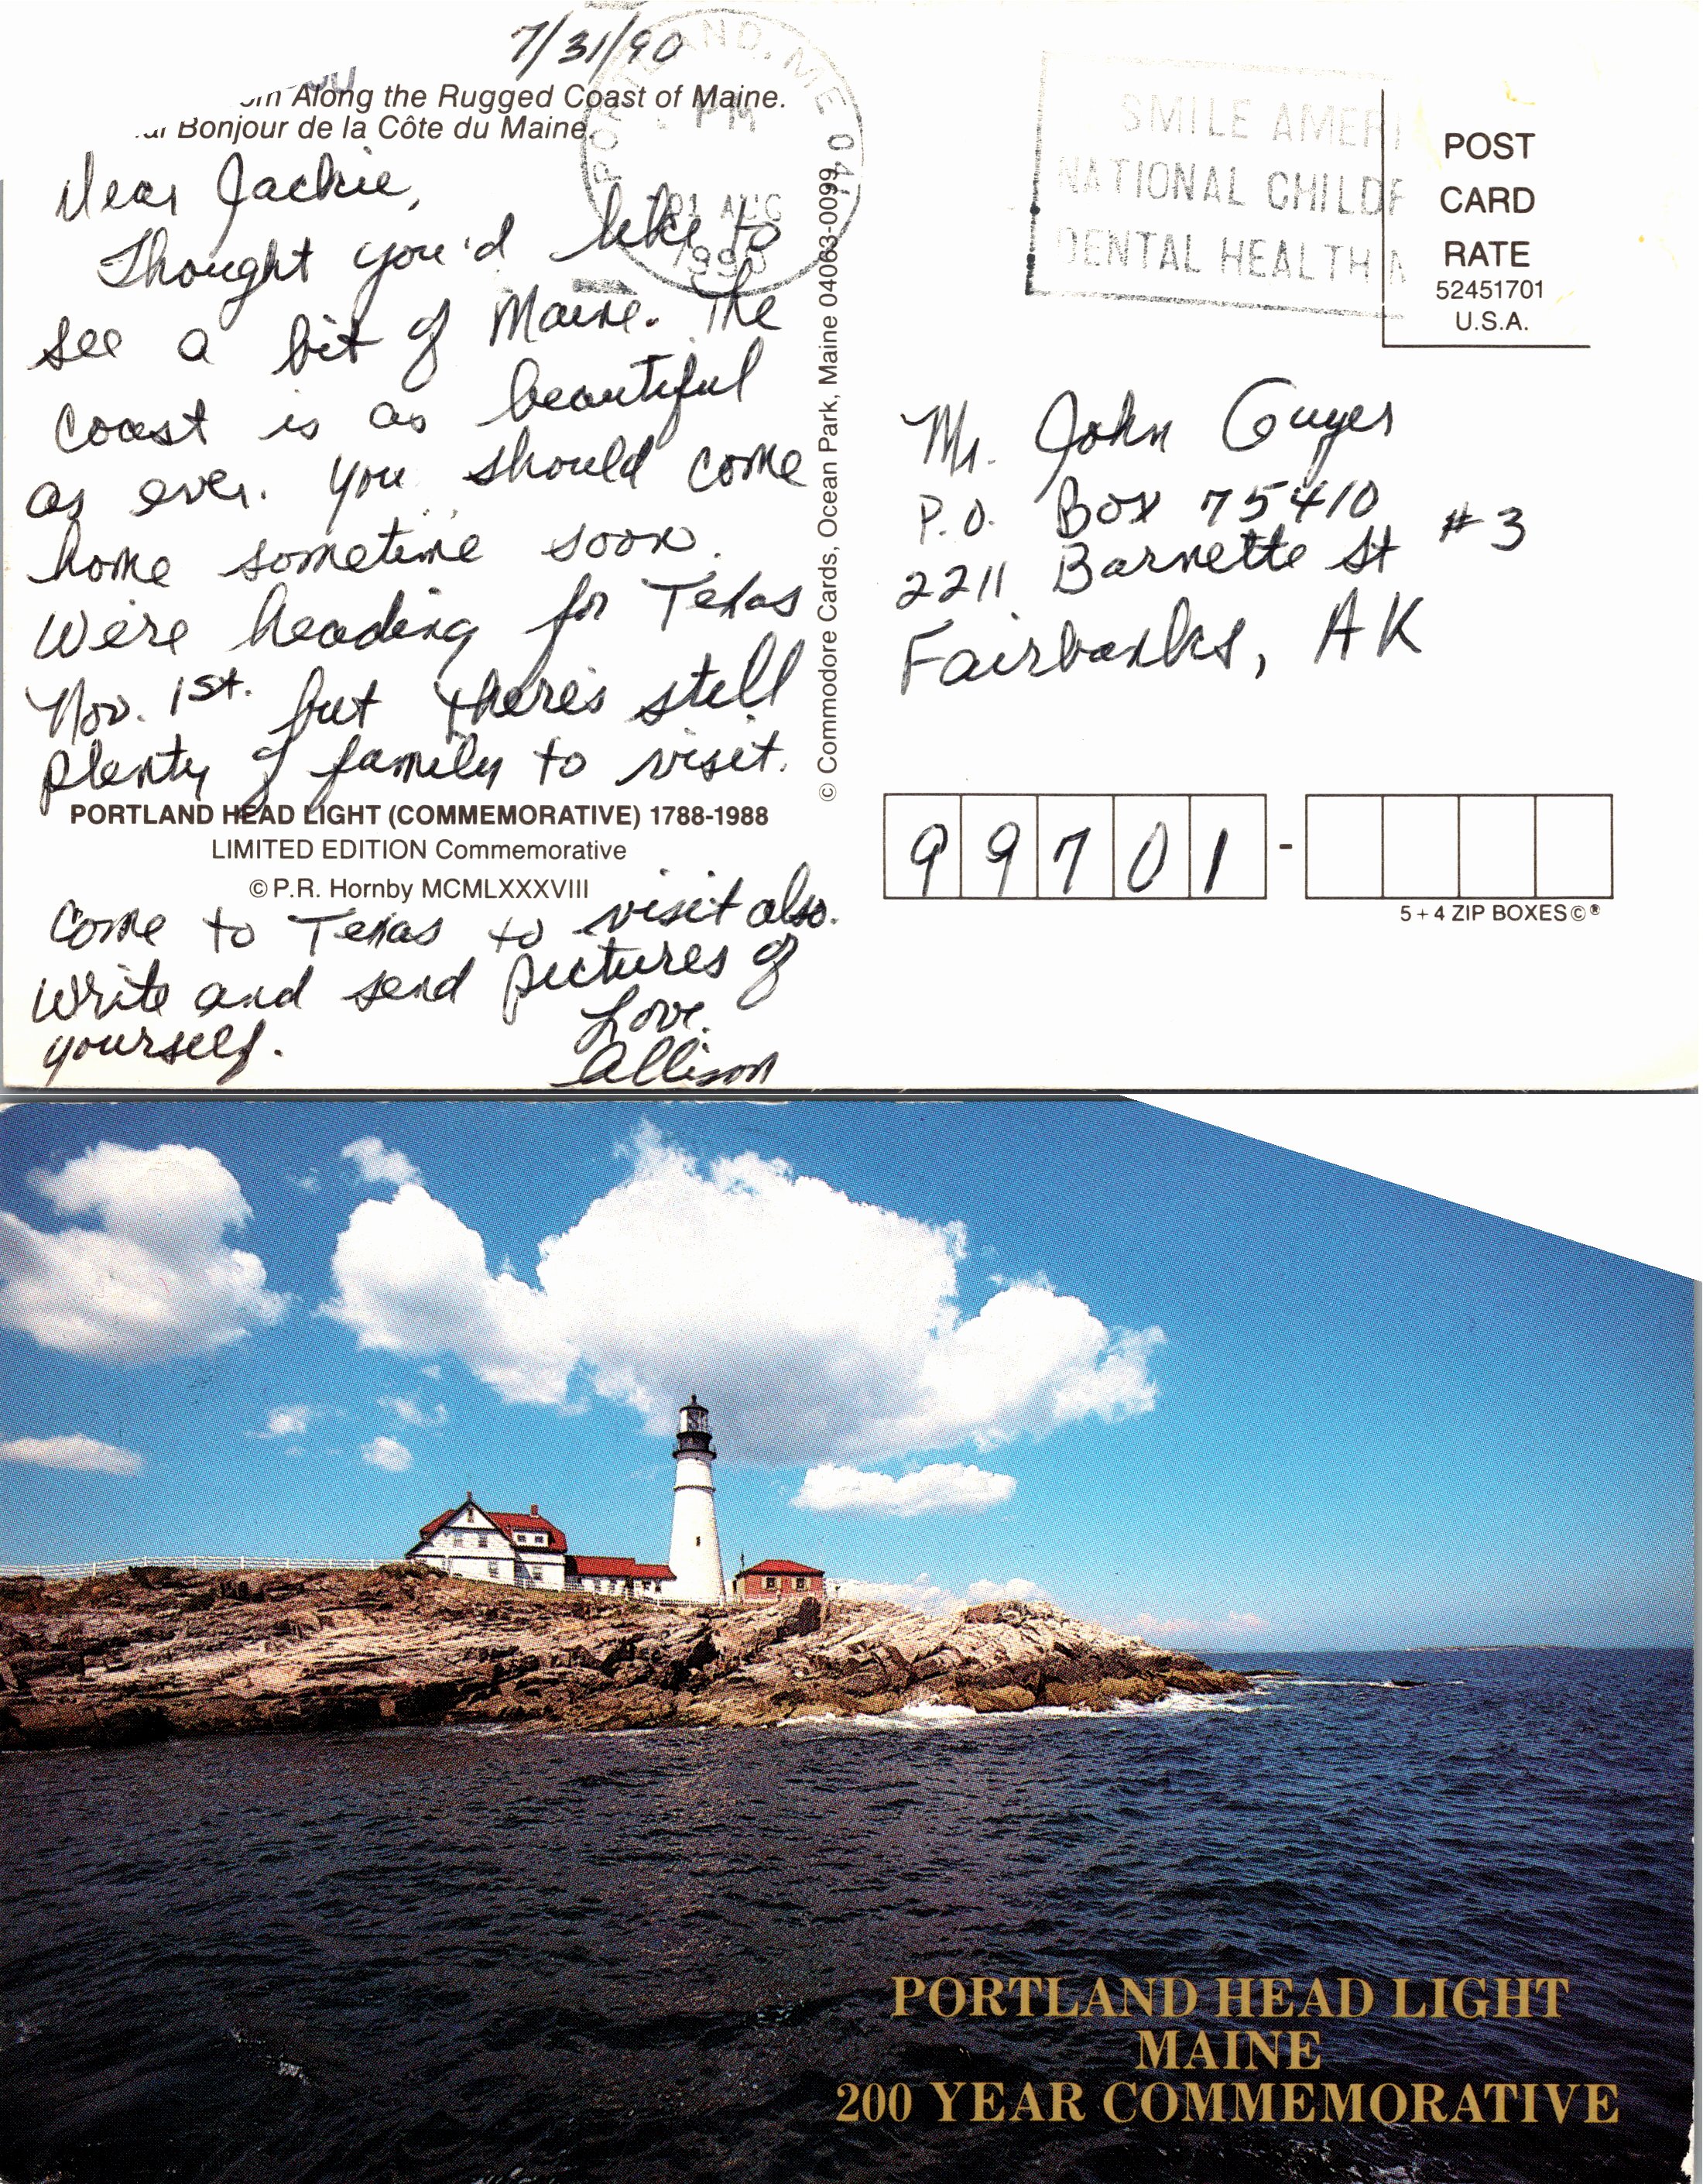 7/31/90
Along the Rugged Coast of Maine.
Bonjour de la Côte du Maine.
PORTLAND, ME 041
PM
01 AUG
1990
SMILE AMERI
NATIONAL CHILDR
DENTAL HEALTH M
POST
CARD
RATE
52451701
U.S.A.
Dear Jackie,
Thought you'd like to
see a bit of Maine. The
coast is as beautiful
as ever. You should come
home sometime soon.
We're heading for Texas
Nov. 1st. but there's still
plenty of family to visit.
PORTLAND HEAD LIGHT (COMMEMORATIVE) 1788-1988
LIMITED EDITION Commemorative
© P.R. Hornby MCMLXXXVIII
Come to Texas to visit also.
Write and send pictures of
yourself.
Love,
Allison
© Commodore Cards, Ocean Park, Maine 04063-0099
Mr. John Guyer
P.O. Box 75410
2211 Barnette St #3
Fairbanks, AK
99701 -
5 + 4 ZIP BOXES©®
PORTLAND HEAD LIGHT
MAINE
200 YEAR COMMEMORATIVE